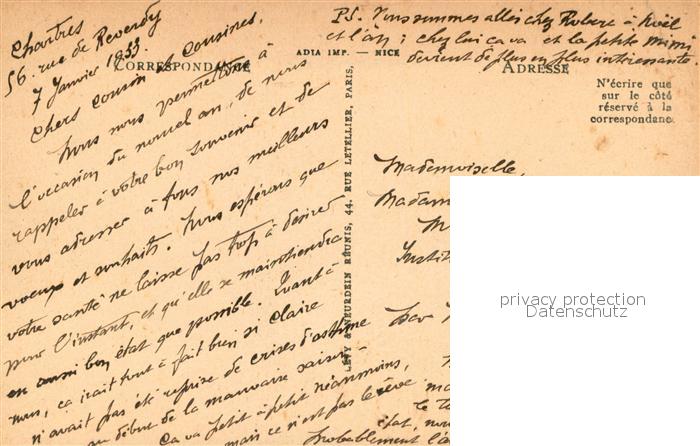 PS. Nous sommes allés chez Robert à Noël
et l'an ; chez lui ça va et la petite Mimi
devient de plus en plus intéressante.
ADIA IMP. — NICE
CORRESPONDANCE
ADRESSE
N'écrire que
sur le côté
réservé à la
correspondanc
Chartres
56, rue de Reverdy
7 Janvier 1933
Chers Cousin et Cousines,
Nous nous permettons à
l'occasion du nouvel an, de nous
rappeler à votre bon souvenir et de
vous adresser à tous nos meilleurs
voeux et souhaits. Nous espérons que
votre santé ne laisse pas trop à désirer
pour l'instant, et qu'elle se maintiendra
en aussi bon état que possible. Quant à
nous, ça irait tout à fait bien si Claire
n'avait pas été reprise de crises d'asthme
au début de la mauvaise saison
Ça va petit à petit néanmoins,
mais ce n'est pas le rêve
Probablement
LÉVY & NEURDEIN RÉUNIS, 44, RUE LETELLIER, PARIS.
Mademoiselle,
Madam
M
Instit
privacy protection
Datenschutz